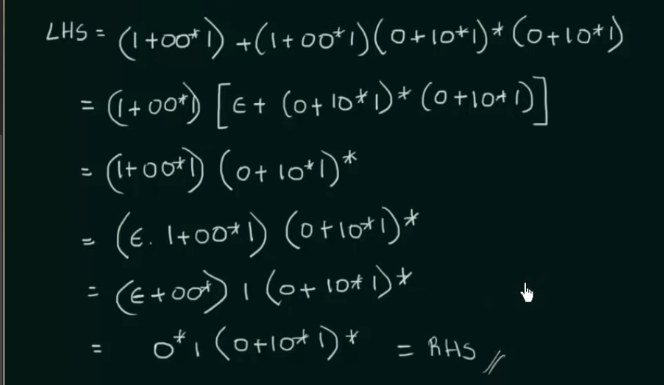 LHS = (1+00*1) + (1+00*1)(0+10*1)*(0+10*1)
= (1+00*1) [ε + (0+10*1)*(0+10*1)]
= (1+00*1) (0+10*1)*
= (ε. 1+00*1) (0+10*1)*
= (ε+00*) 1 (0+10*1)*
= 0*1 (0+10*1)* = RHS //